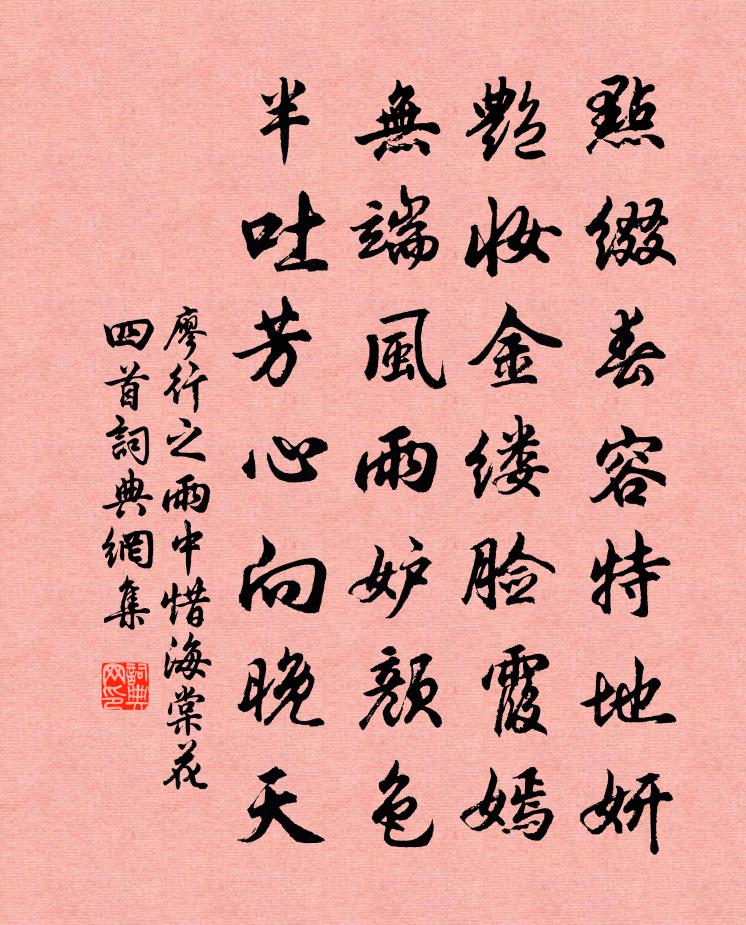 點綴春容特地妍
艷妝金缕脸霞嫣
無端風雨妒顔色
半吐芳心向晚天
廖行之雨中惜海棠花
四首詞典網集
詞典網印